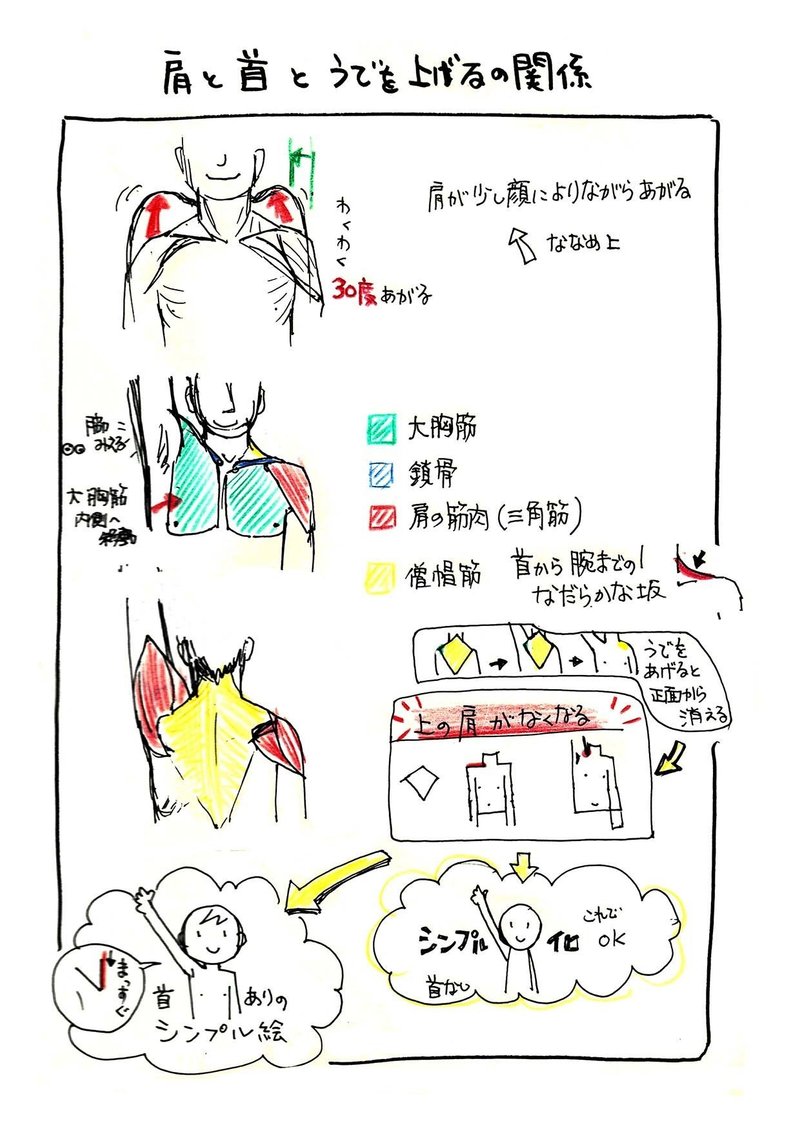 肩と首とうでを上げるの関係
わくわく
30度あがる
肩が少し顔によりながらあがる
ななめ上
脇に
みえる
大胸筋
内側へ
移動
大胸筋
鎖骨
肩の筋肉(三角筋)
僧帽筋
首から腕までの
なだらかな坂
うでを
あげると
正面から
消える
上の肩がなくなる
まっすぐ
首ありの
シンプル絵
シンプル化
これで
OK
首なし